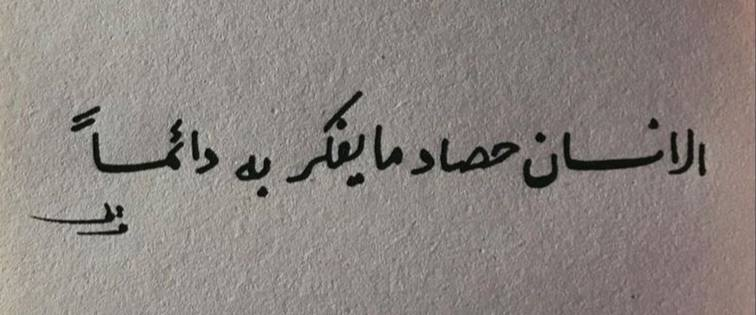 الانسان حصاد ما يفكر به دائماً